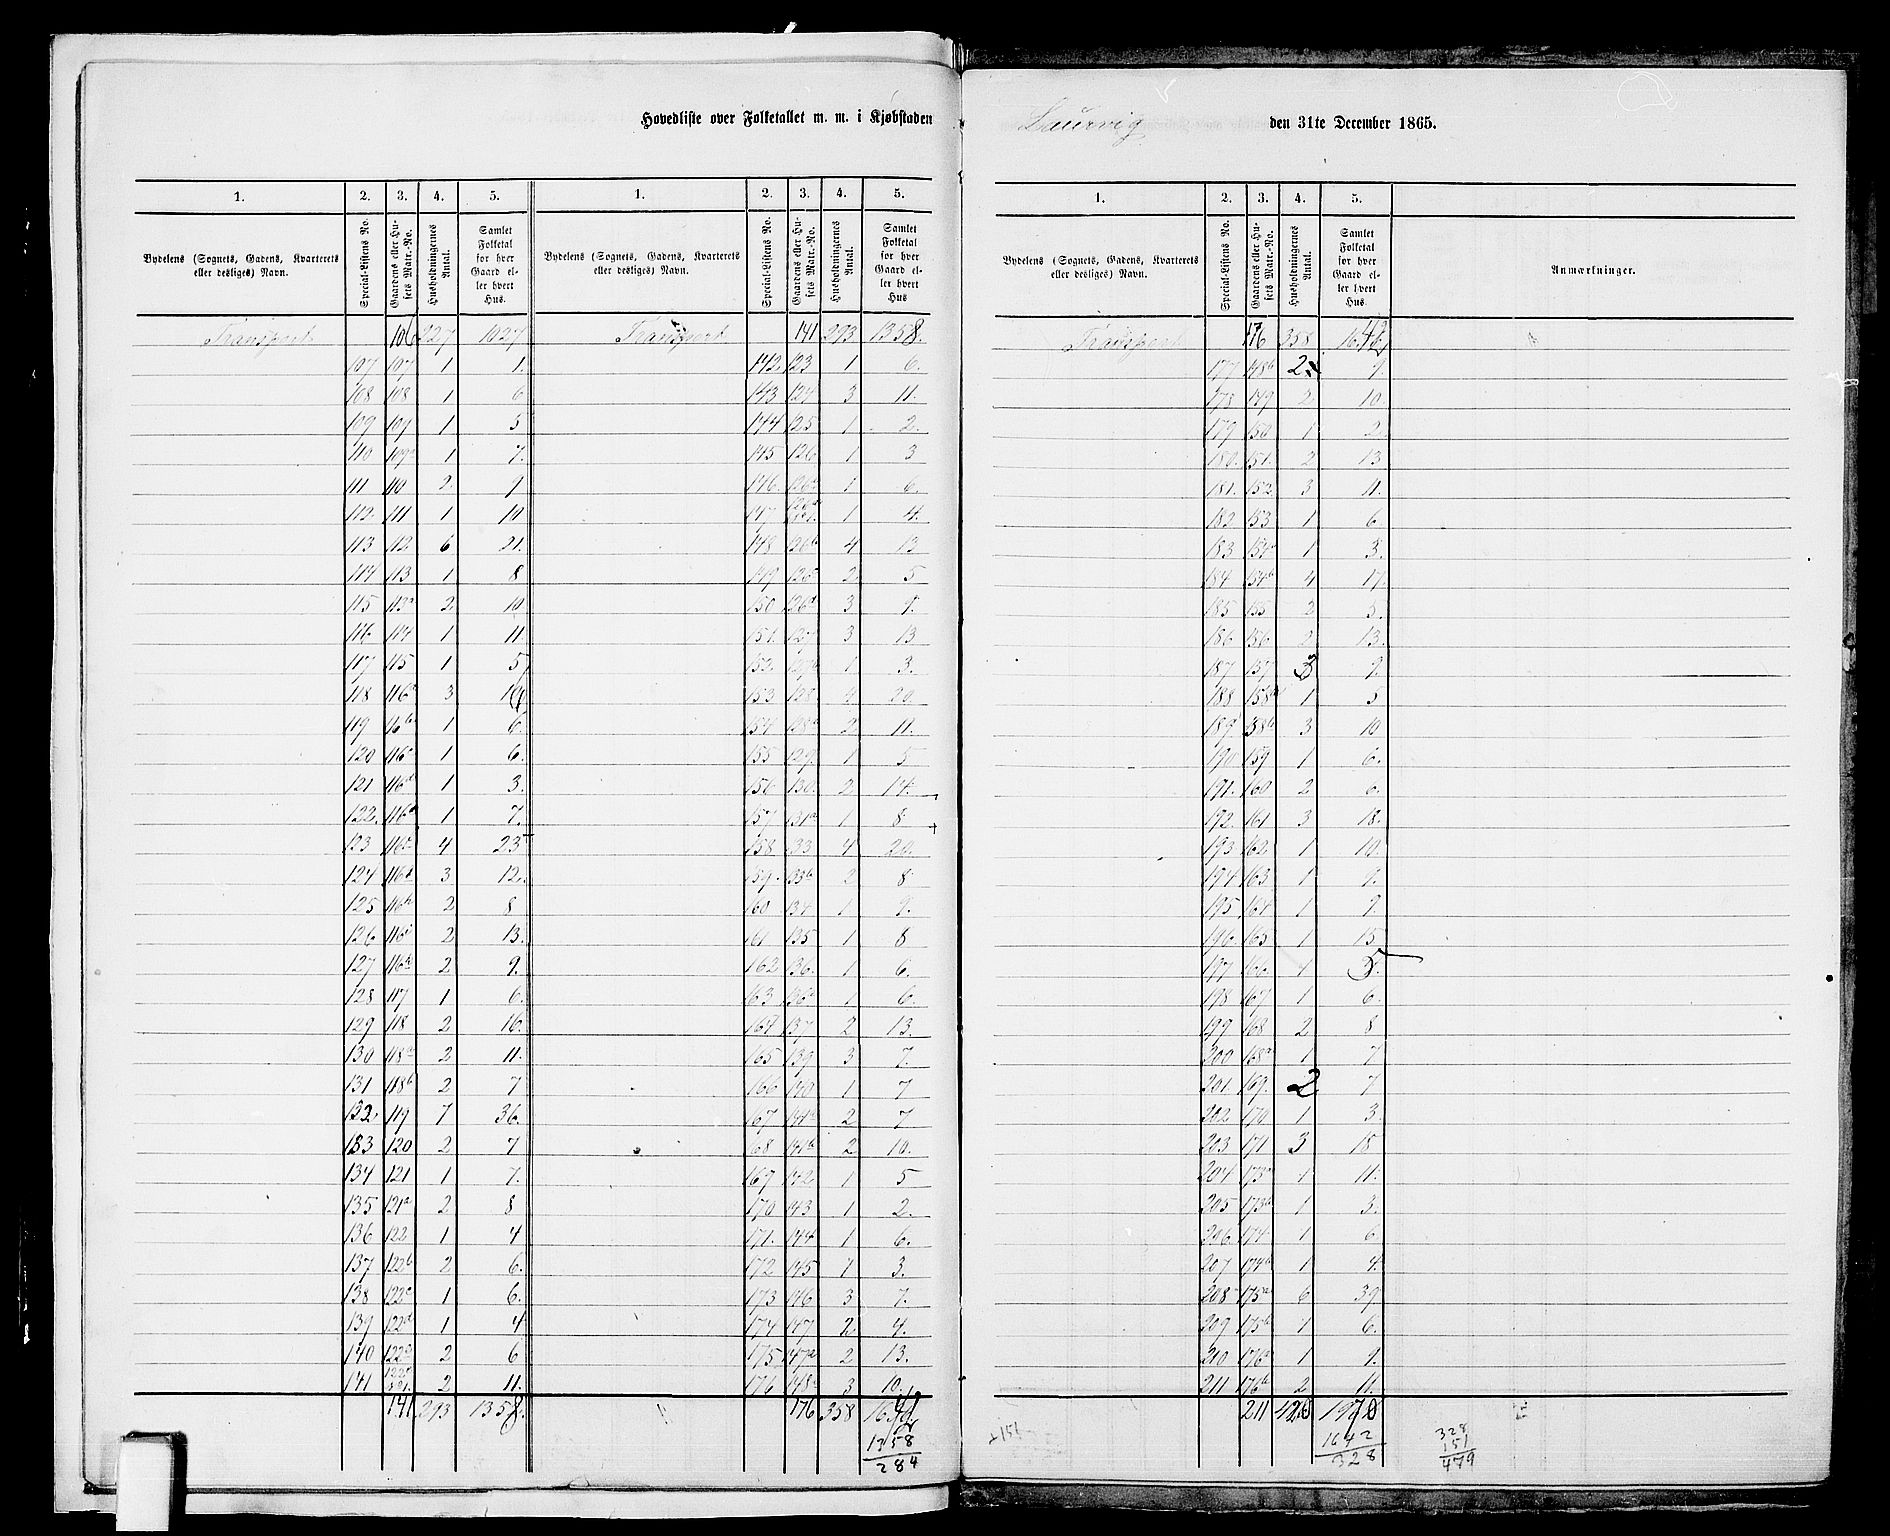 Hovedliste over Folketallet m. m. i Kjøbstaden Laurvig den 31te December 1865.
1. 2. 3. 4. 5. 1. 2. 3. 4. 5.
Bydelens (Sognets, Gadens, Kvarterets eller desliges) Navn. Special-Listens No. Gaardens eller Husets Matr.-No. Husholdningernes Antal. Samlet Folketal for hver Gaard eller hvert Hus. Bydelens (Sognets, Gadens, Kvarterets eller desliges) Navn. Special-Listens No. Gaardens eller Husets Matr.-No. Husholdningernes Antal. Samlet Folketal for hver Gaard eller hvert Hus
Transport 106 227 1027 Transport 141 293 1358
107 107 1 1. 142. 123 1 6.
108 108 1 6 143 124 3 11.
109 109 1 5 144 125 1 2.
110 109a 1 7. 145 126 1 3
111 110 2 9 146. 126a 1 6.
112. 111 1 10 147 1 4.
113 112 6 21. 148 126b 4 13
114 113 1 8 149 126c 2 5
115 113a 2 10 150 126d 3 9.
116 114 1 11. 151. 127 3 13
117 115 1 5 152. 127b 1 3.
118 116a 3 153 128 4 20.
119 116b 1 6. 154 128a 2 11.
120 116c 1 6. 155 129. 1 5
121 116d 1 3. 156 130. 2 14.
122. 116e 1 7. 157 131a 1 8
123 116 4 23 158 133 4 20.
124 116 3 12. 159. 133b 2 8
125 116h 2 8 160 134 1 9.
126 116i 2 13. 161 135 1 8
127 116k 2 9. 162 136. 1 6.
128 117 1 6. 163 136a 1 6.
129 118 2 16. 164 137 2 13.
130 118a 2 11. 165 139 3 7.
131 118b 2 7 166 140 1 7
132. 119 7 36. 167 141a 2 7
133 120 2 7 168 141b 2 10.
134 121 1 7. 169 142 1 5
135 121a 2 8 170 143 1 2.
136 122 1 4 171. 144 1 6.
137 122b 2 6. 172 145 1 3.
138 122c 1 6. 173 146 3 7.
139 122d 1 4 174 147 2 4.
140 122e 2 6 175 147a 2 13.
141 2 11. 176 148a 3 10.
141 293 1358. 176 358
1358
284
1. 2. 3. 4. 5.
Bydelens (Sognets, Gadens, Kvarterets eller desliges) Navn. Special-Listens No. Gaardens eller Husets Matr.-No. Husholdningernes Antal. Samlet Folketal for hver Gaard eller hvert Hus Anmærkninger.
Transport 176 358
177 148b 2 9.
178 149 2 10.
179 150 1 2
180. 151. 2 13
181. 152. 3 11.
182 153 1 6
183 154a 1 3.
184 154b 4 17.
185 155 2 5.
186 156 2 13.
187 157 3 9.
188 158a 1 5
189 158b 3 10
190 159 1 6.
191. 160 2 6.
192. 161 3 18.
193 162. 1 10.
194 163 1 9.
195 164 1 9.
196. 165 1 15
197 166. 1 5
198 167 1 6
199 168 2 8
200 168a 1 7
201. 169. 2 7
202 170 1 3.
203 171 3 18
204 173a 1 11.
205 173b 1 3.
206 174. 1 6
207 174b 1 4.
208 175a 6 39
209 175b 1 6.
210 176a 1 9.
211 176b 2 11.
211 420 1970
1642
328
+151
328
151
479